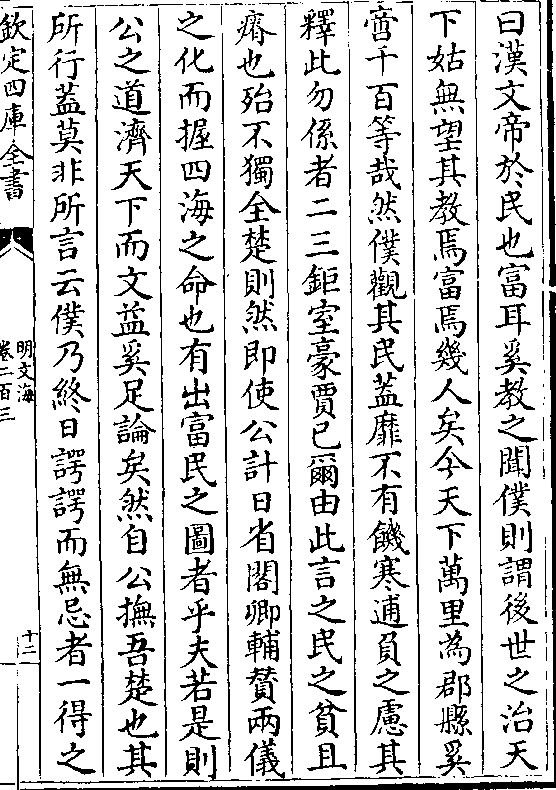 曰漢文帝於民也富耳奚教之聞僕則謂後世之治天
下姑無望其教焉富焉幾人矣今天下萬里為郡縣奚
啻千百等哉然僕觀其民蓋靡不有饑寒逋負之慮其
釋此勿係者二三鉅室豪賈已爾由此言之民之貧且
瘠也殆不獨全楚則然即使公計日省閣卿輔贊兩儀
之化而握四海之命也有出富民之圖者乎夫若是則
公之道濟天下而文益奚足論矣然自公撫吾楚也其
所行蓋莫非所言云僕乃終日諤諤而無忌者一得之
欽定四庫全書
明文海
卷二百三
十二